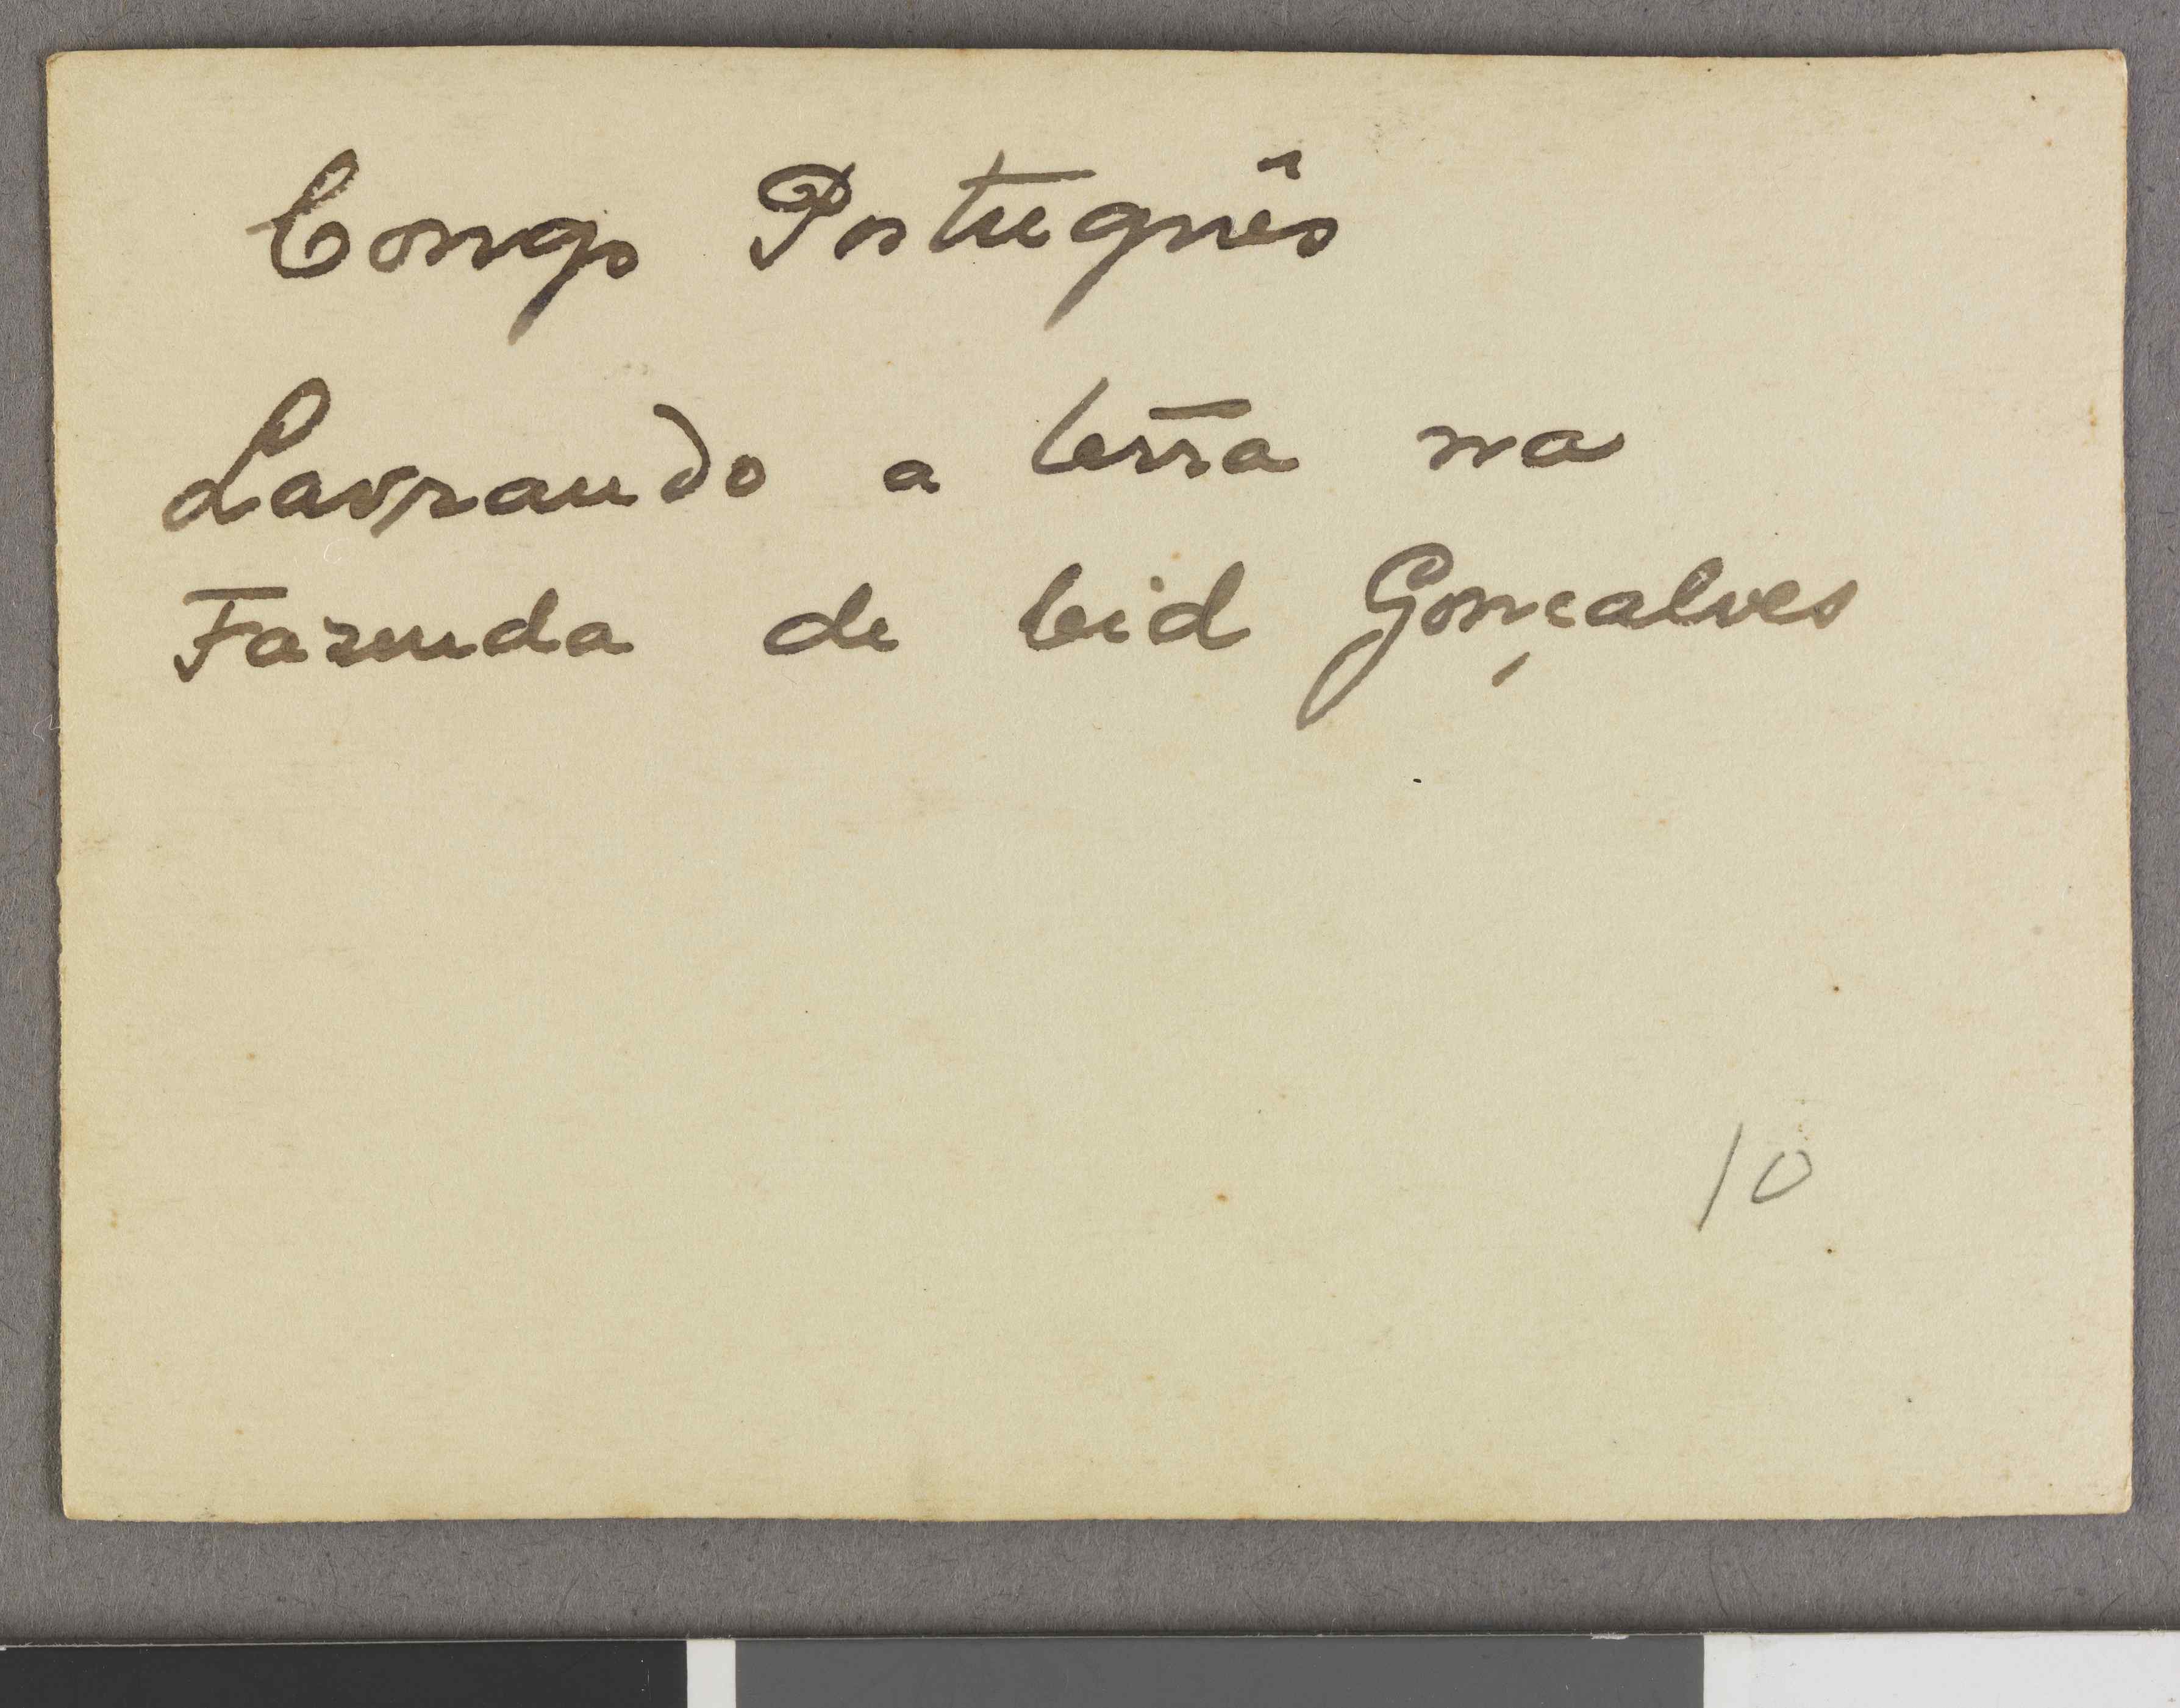 Congo Português
Lavrando a terra na
Fazenda de Cid Gonçalves
10